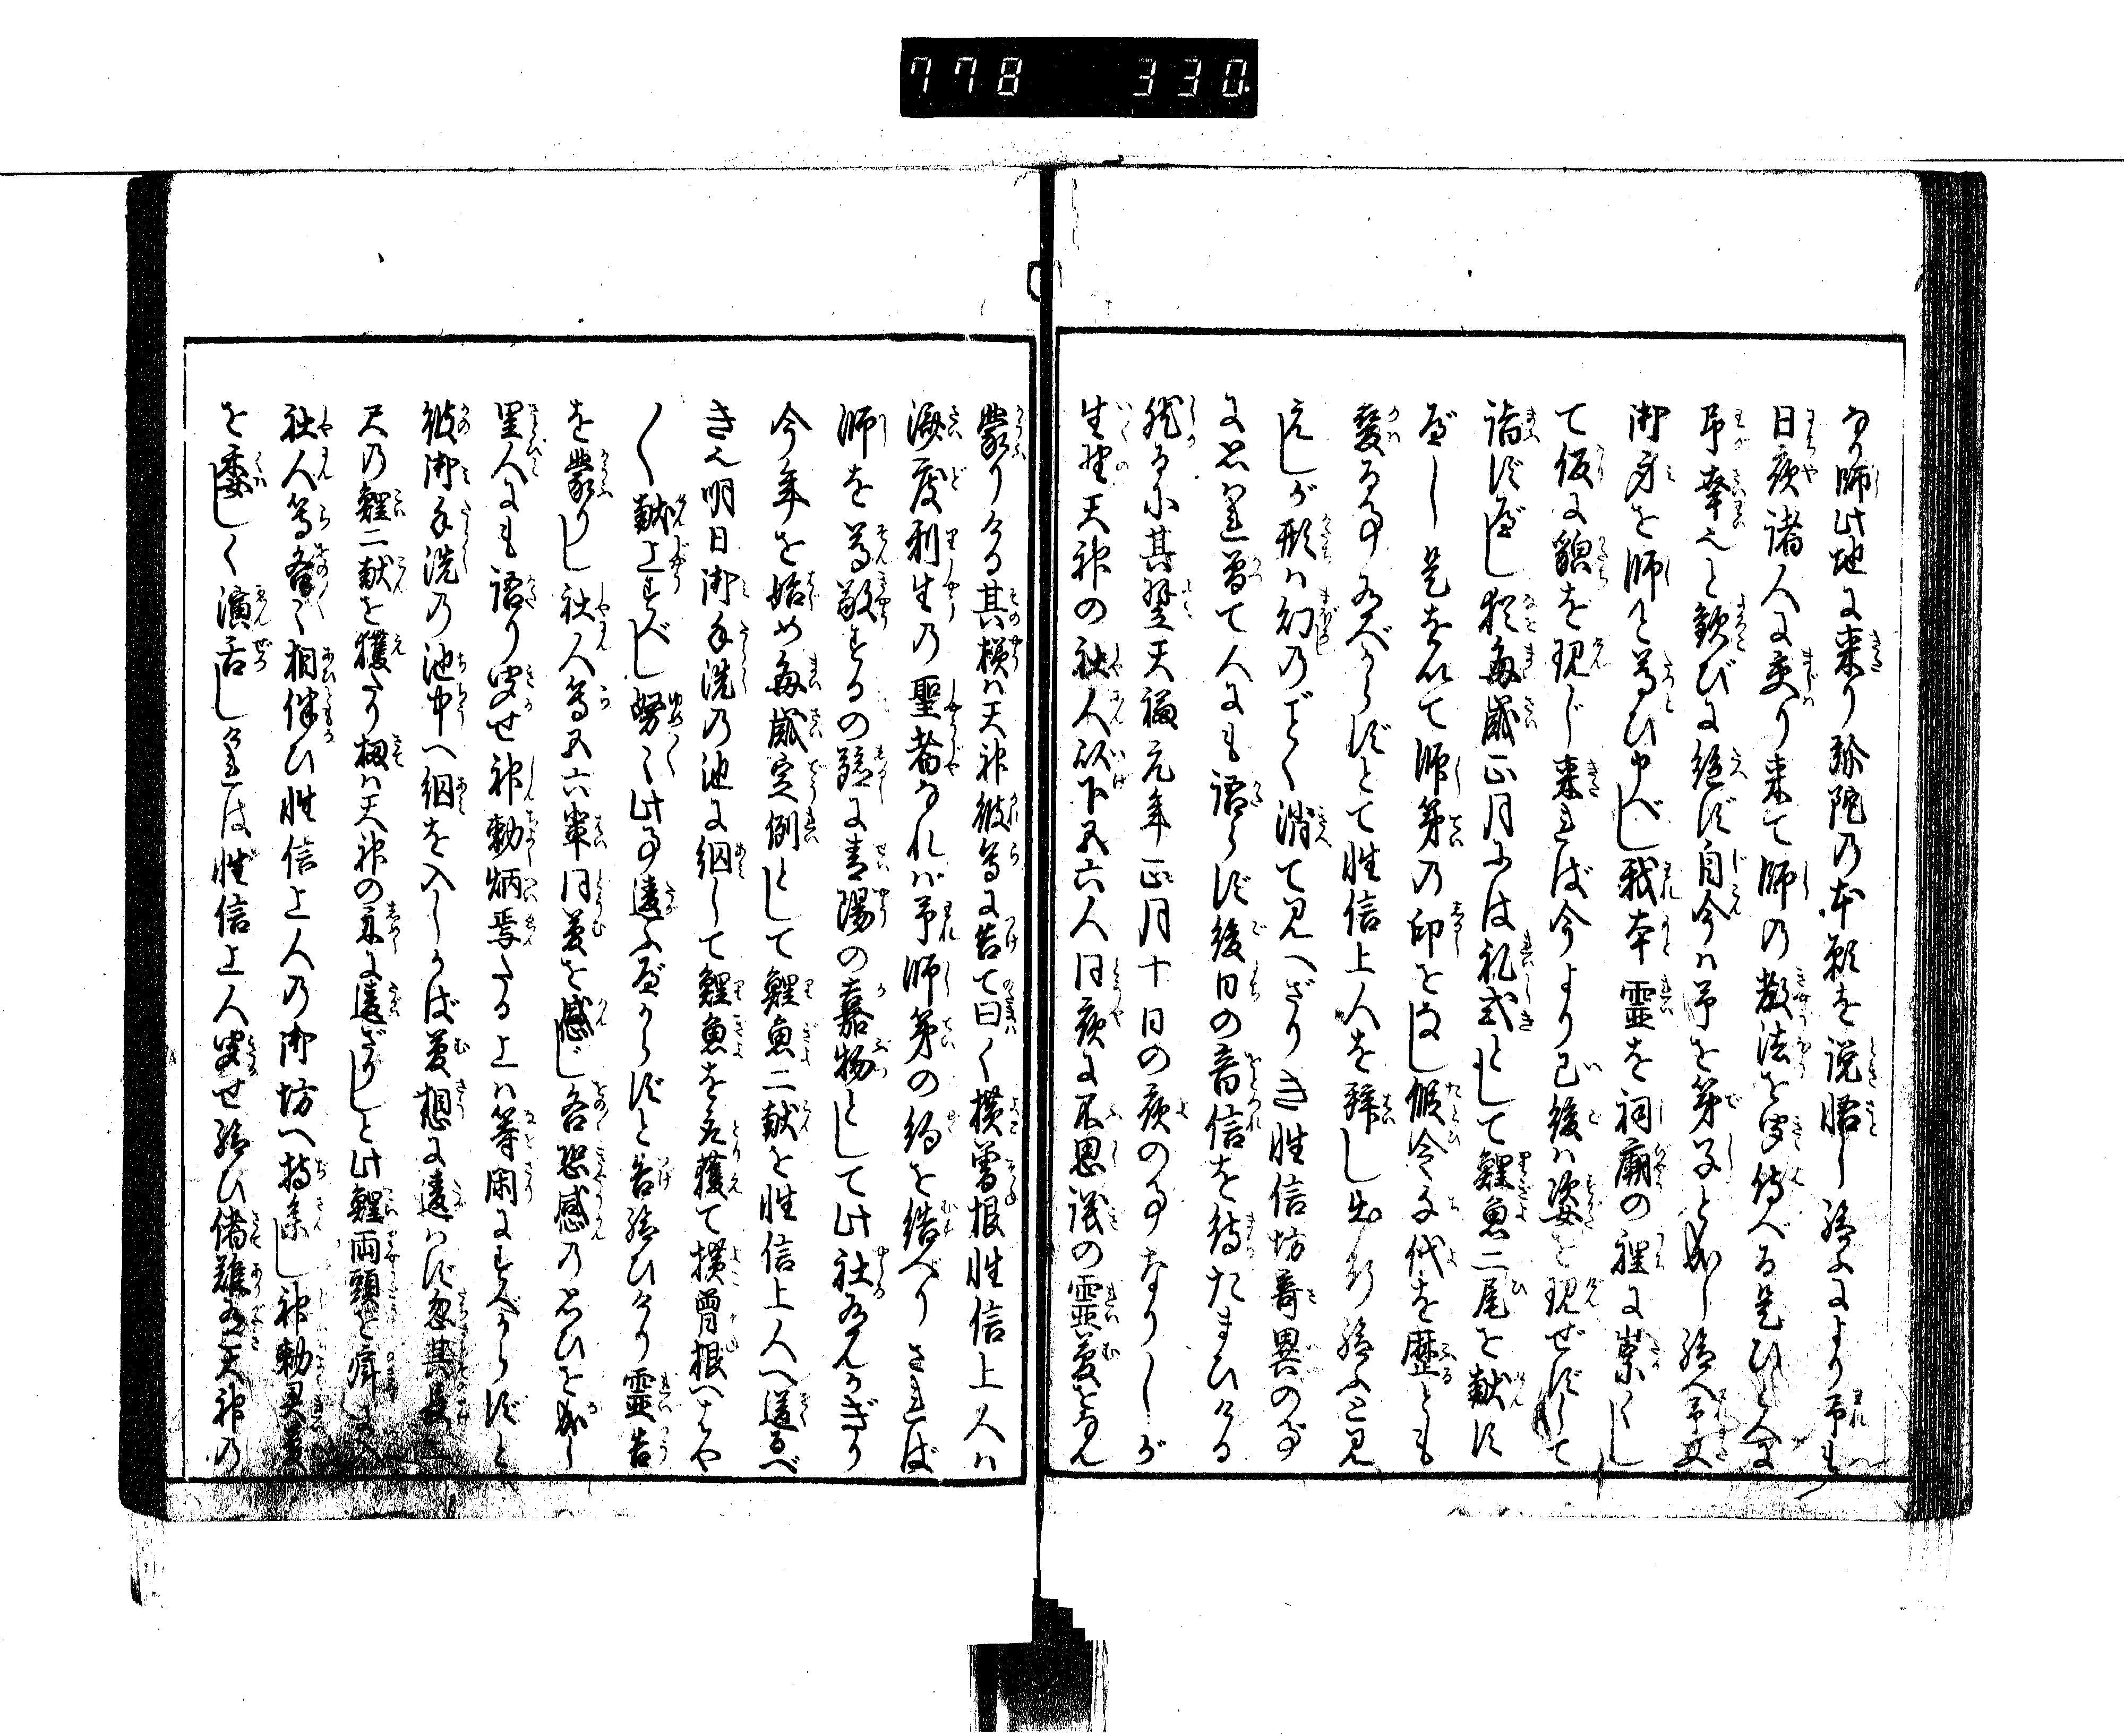 778 330
なり師此地に来り弥陀の本願を説悟し給ふにより予も
日夜諸人に交り来て師の教法を聞侍べる是ひとへに
吾幸也と歓びに絶ず自今は予を弟子と成し給へ予又
御身を師と尊ひ申べし我本霊を祠廟の裡に崇くし
て仮に貌を現じ来れば今より已後は姿を現ぜずして
詣ずべし猶毎歳正月には礼式として鯉魚二尾を献ず
べし是を以て師弟の印となし仮令千代を歴とも
変る事有べからずとて性信上人を拝し出行給ふと見
えしが形は幻のごとく消て見へざりき性信坊奇異の事
に思はれ曽て人にも語らず後日の音信を待たまひける
然るに其翌天福元年正月十日の夜の事なりしが
生野天神の社人以下五六人同夜に不思議の霊夢をなん
蒙りける其様は天神彼等に告て曰く横曽根性信上人は
済度利生の聖者なれば予師弟の約を結べりされば
師を尊敬するの験に青陽の嘉物として此社有んかぎり
今年を始め毎歳定例として鯉魚二献を性信上人へ送るべ
き也明日御手洗の池に網して鯉魚を取獲て横曽根へはや
〱献上すべし努〻此事違ふべからずと告給ひけり霊告
を蒙りし社人等五六輩同夢を感じ各恐感の思ひを成し
里人にも語り聞せ神勅炳焉たる上は等閑にすべからずと
彼御手洗の池中へ網を入しかば夢想に違はず忽其長二
尺の鯉二献を獲たり扨は天神の示に違ざりしと此鯉両頭を
社人等各〻相伴ひ性信上人の御坊へ持参し神勅霊夢
を委しく演舌しければ性信上人聞せ給ひ偖難有天神の